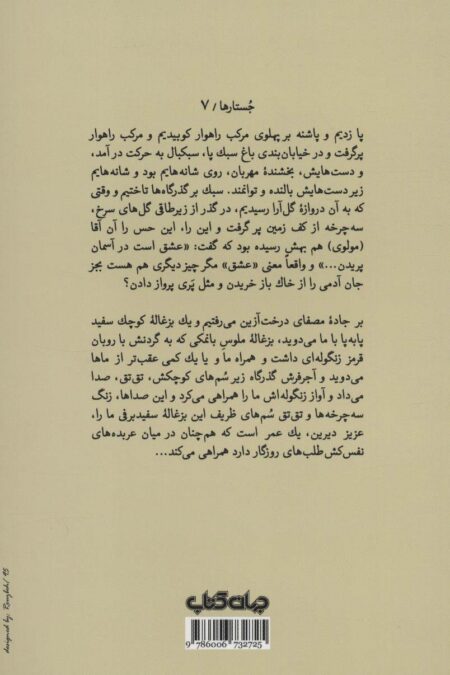 جُستارها / ۷
پا زدیم و پاشنه بر پهلوی مرکب راهوار کوبیدیم و مرکب راهوار
پرگرفت و در خیابان‌بندی باغ سبک پا، سبکبال به حرکت در آمد،
و دست‌هایش، بخشندهٔ مهربان، روی شانه‌هایم بود و شانه‌هایم
زیر دست‌هایش بالنده و توانمند. سبک بر گذرگاه‌ها تاختیم و وقتی
که به آن دروازهٔ گل‌آرا رسیدیم، در گذر از زیرطاقی گل‌های سرخ،
سه‌چرخه از کف زمین پر گرفت و این را، این حس را آن آقا
(مولوی) هم بهش رسیده بود که گفت: «عشق است در آسمان
پریدن...» و واقعاً معنی «عشق» مگر چیز دیگری هم هست بجز
جان آدمی را از خاک باز خریدن و مثل پَری پرواز دادن؟
بر جادهٔ مصفای درخت‌آزین می‌رفتیم و یک بزغالهٔ کوچک سفید
پابه‌پا با ما می‌دوید، بزغالهٔ ملوس بانمکی که به گردنش با روبان
قرمز زنگوله‌ای داشت و همراه ما و یا یک کمی عقب‌تر از ماها
می‌دوید و آجرفرش گذرگاه زیر سُم‌های کوچکش، تق‌تق، صدا
می‌داد و آواز زنگوله‌اش ما را همراهی می‌کرد و این صداها، زنگ
سه‌چرخه‌ها و تق‌تق سُم‌های ظریف این بزغالهٔ سفیدبرفی ما را،
عزیز دیرین، یک عمر است که هم‌چنان در میان عربده‌های
نفس‌کش‌طلب‌های روزگار دارد همراهی می‌کند...
جهان کتاب
9 786006 732725
designed by: